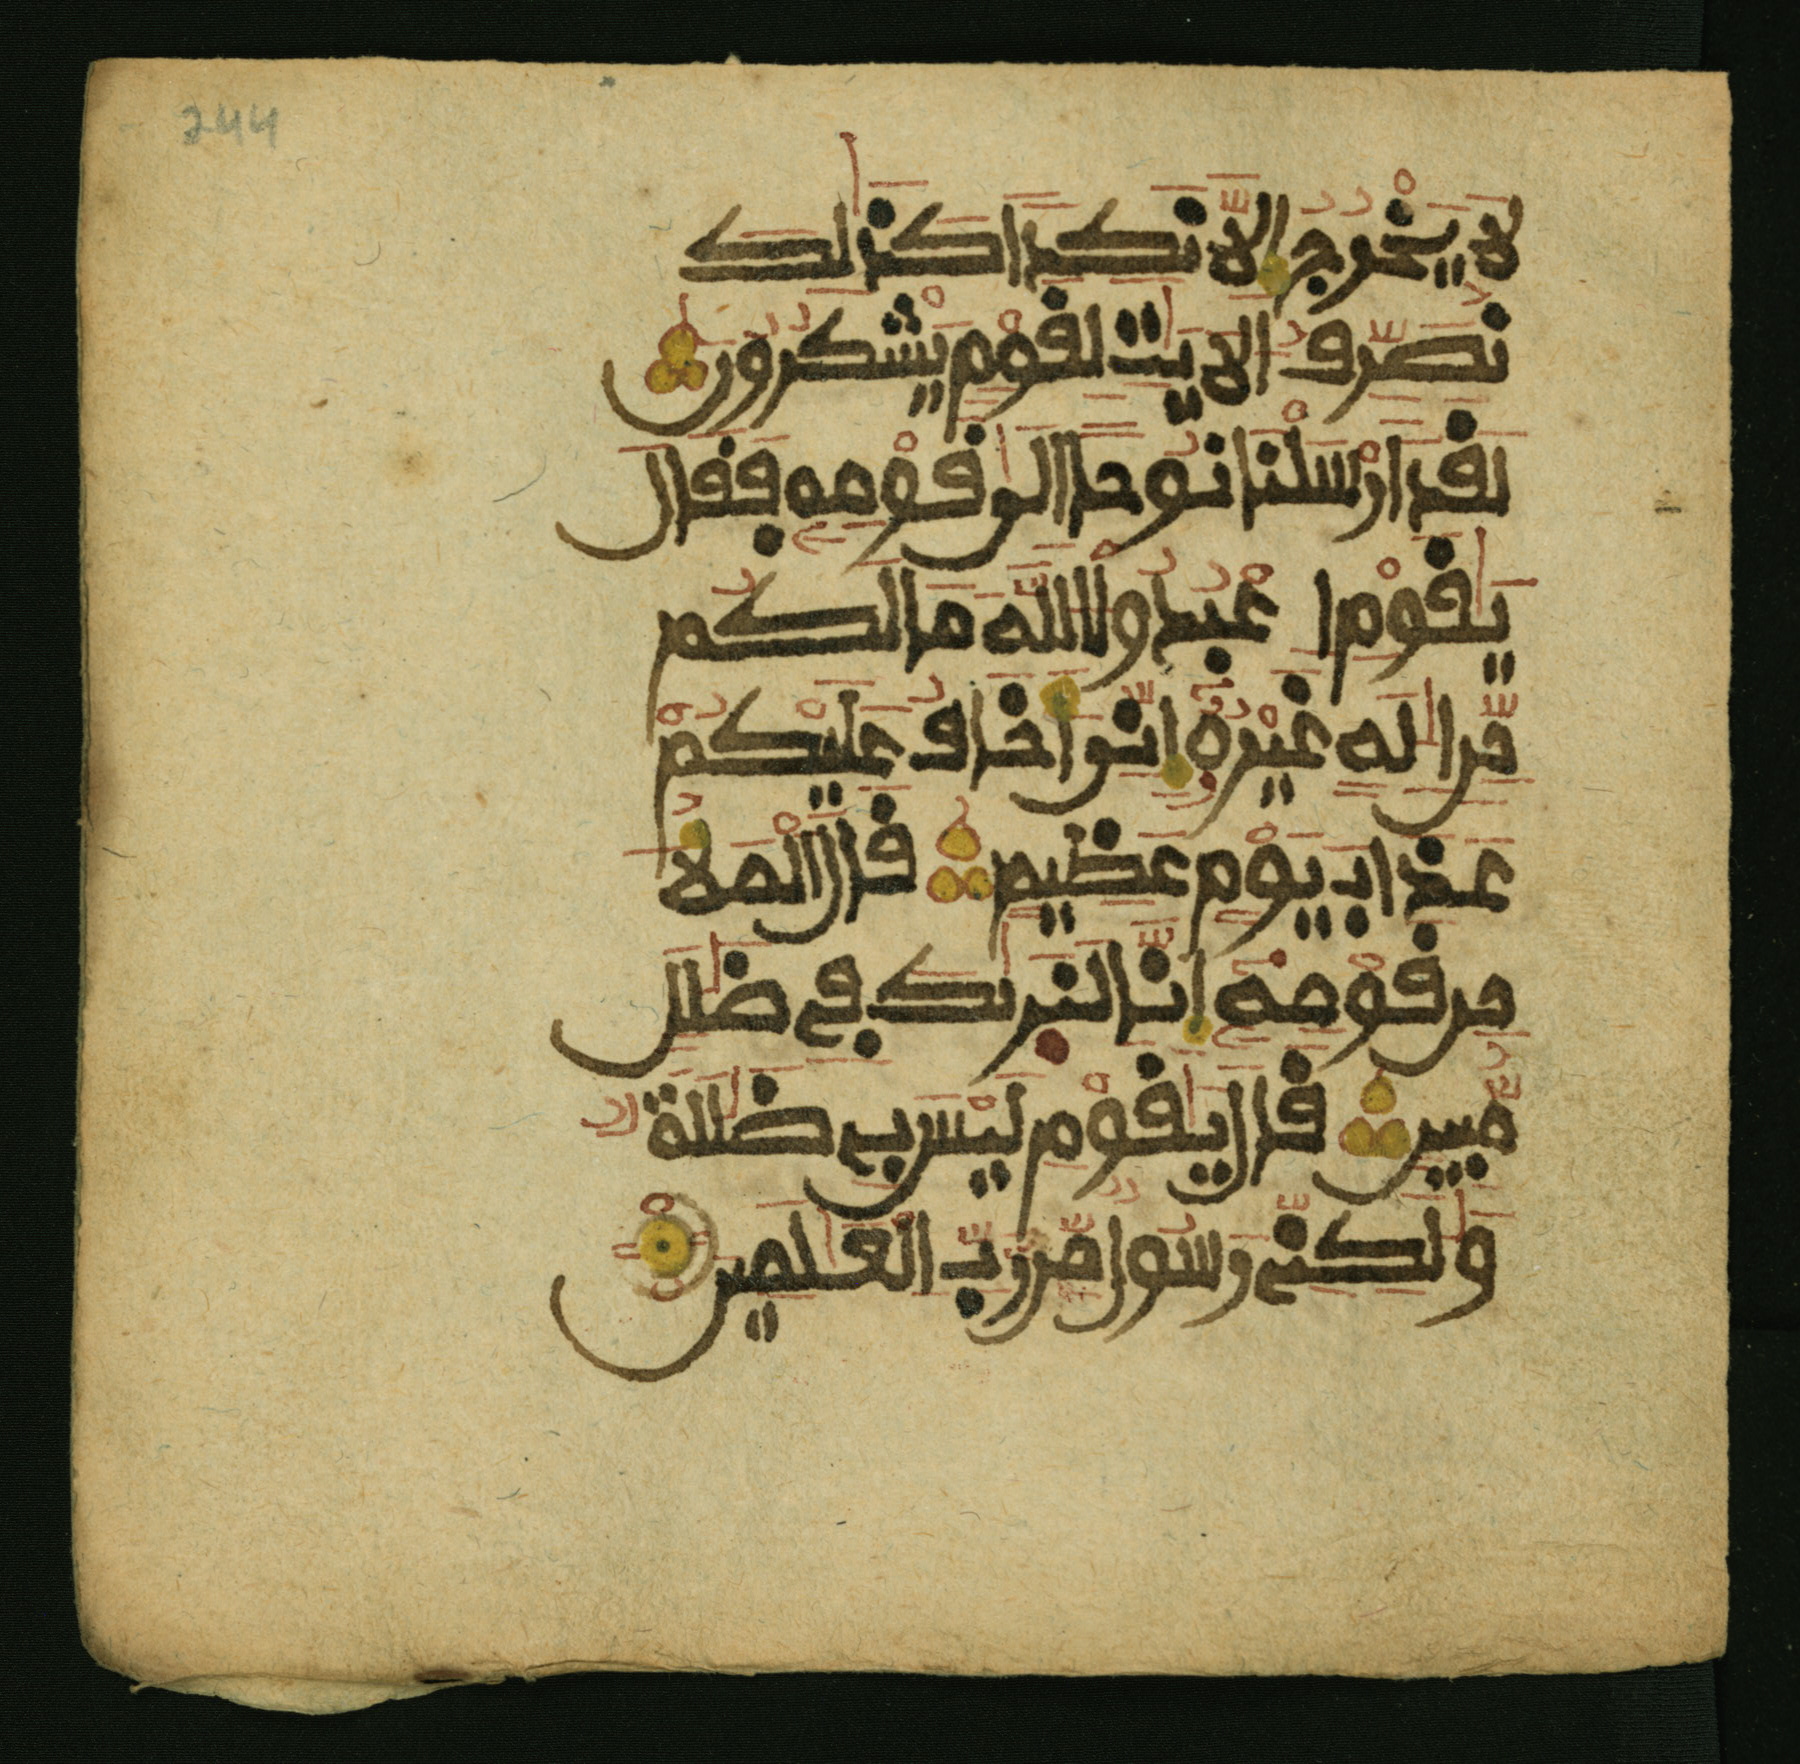 244
لا يخرج إلا نكدا كذلك
نصرف الايت لقوم يشكرون
لقد ارسلنا نوحا الى قومه فقال
يقوم اعبدوا الله ما لكم
من اله غيره انى اخاف عليكم
عذاب يوم عظيم قال الملا
من قومه انا لنريك في ضلل
مبين قال يقوم ليس بي ضللة
ولكني رسول من رب العلمين